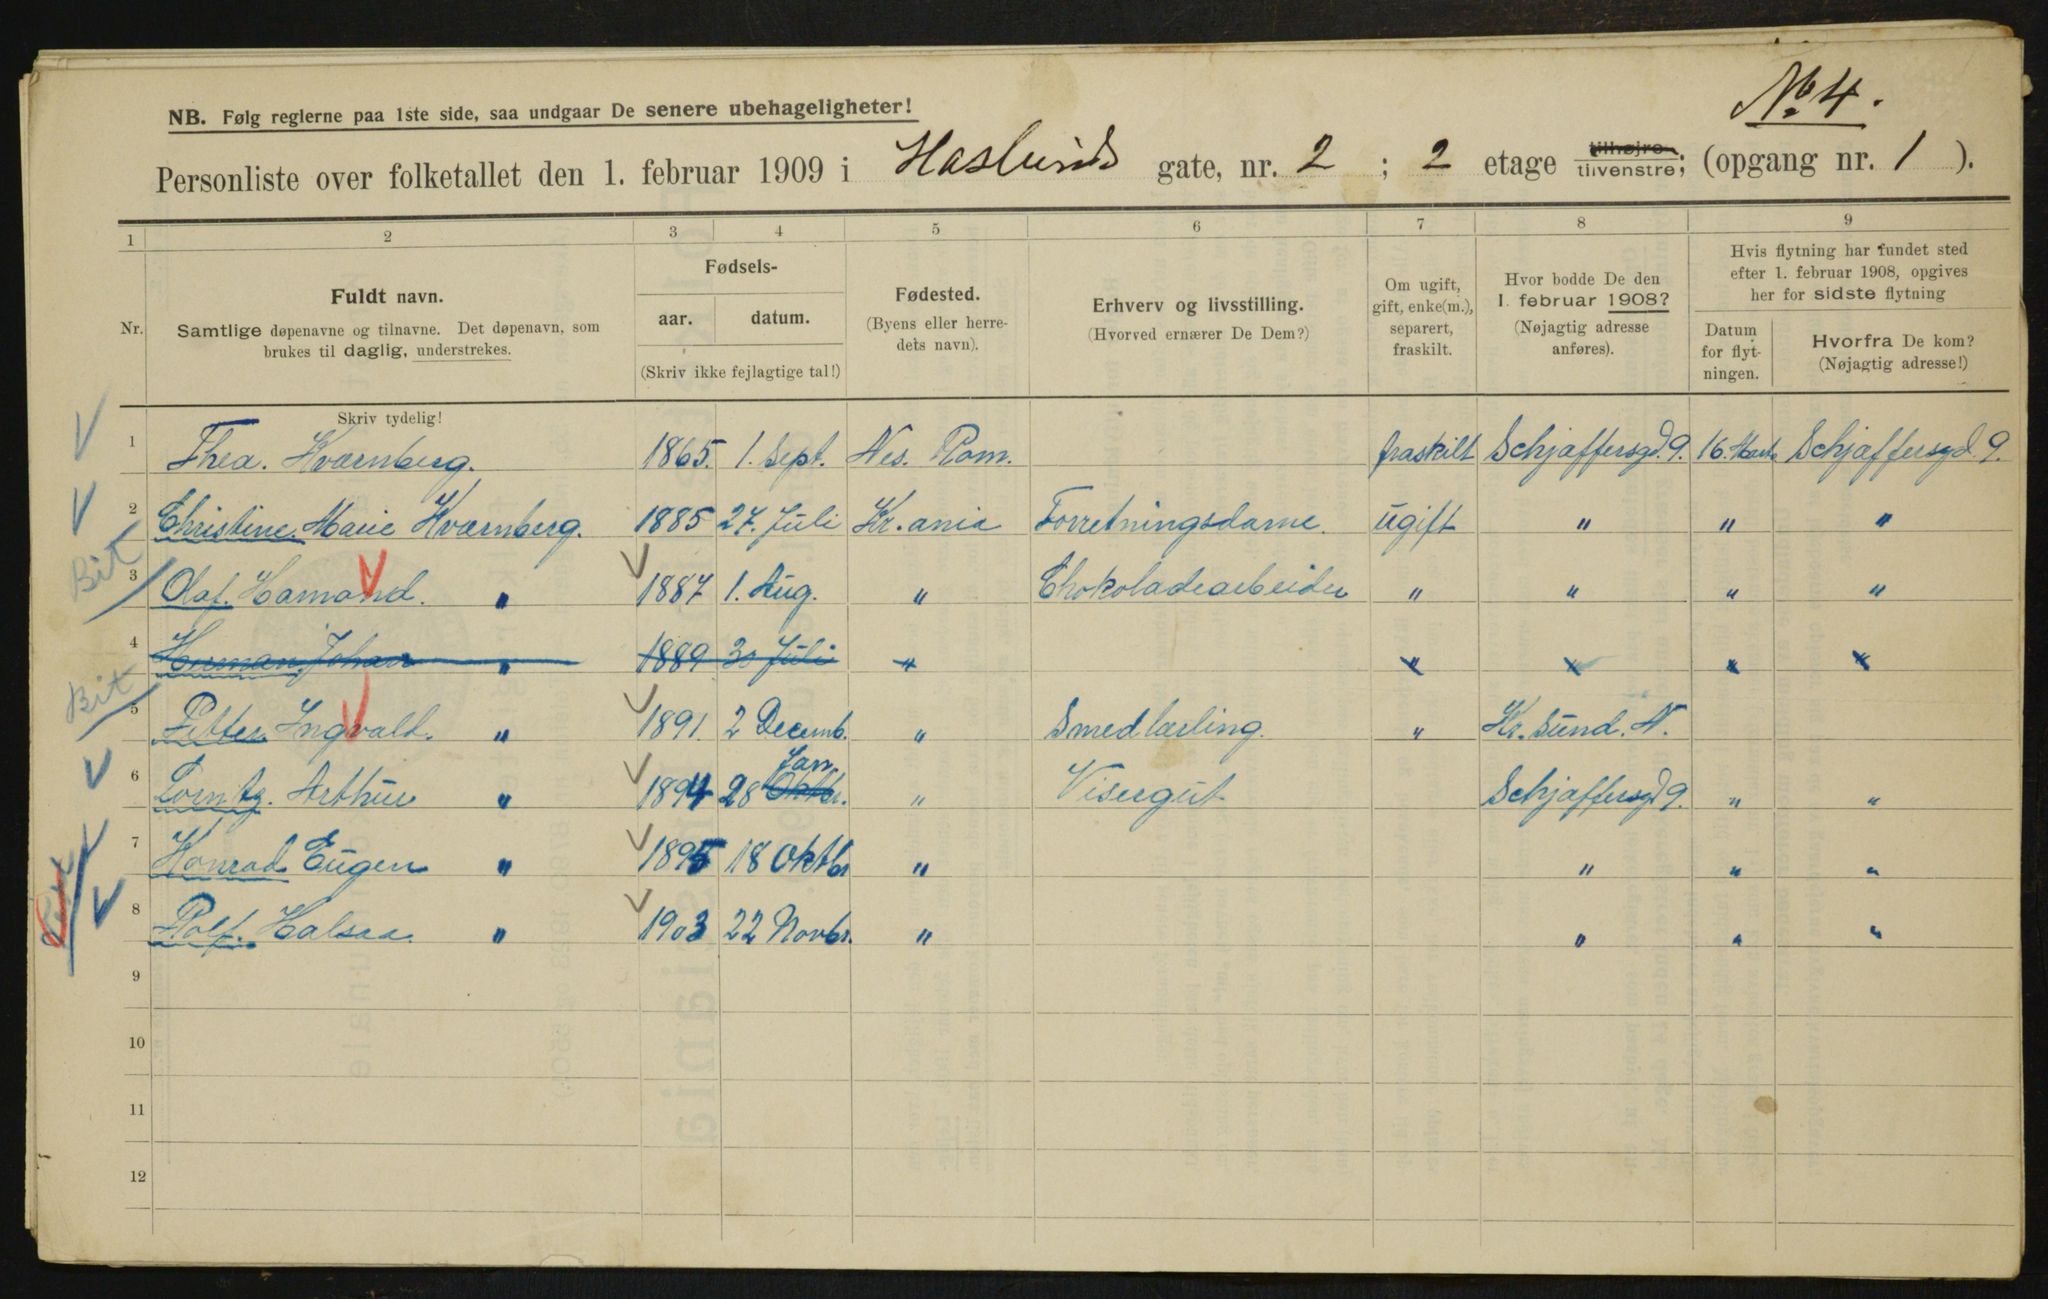 No 4.
NB. Følg reglerne paa 1ste side, saa undgaar De senere ubehageligheter!
Personliste over folketallet den 1. februar 1909 i Haslunds gate, nr. 2 ; 2 etage tilhøjre tilvenstre; (opgang nr. 1 ).
1 2 3 4 5 6 7 8 9
Nr.
Fuldt navn.
Samtlige døpenavne og tilnavne. Det døpenavn, som
brukes til daglig, understrekes.
Fødsels-
aar. datum.
(Skriv ikke fejlagtige tal!)
Fødested.
(Byens eller herre-
dets navn).
Erhverv og livsstilling.
(Hvorved ernærer De Dem?)
Om ugift,
gift, enke(m.),
separert,
fraskilt.
Hvor bodde De den
1. februar 1908?
(Nøjagtig adresse
anføres).
Hvis flytning har fundet sted
efter 1. februar 1908, opgives
her for sidste flytning
Datum
for flyt-
ningen.
Hvorfra De kom?
(Nøjagtig adresse!)
Skriv tydelig!
1 Thea. Kværnberg. 1865. 1. Sept. Nes. Rom. fraskilt Schjaffersgd. 9. 16. Marts Schjaffersgd. 9.
2 Christine. Marie Kværnberg. 1885 27. Juli Kr. ania Forretningsdame. ugift " " "
Bit 3 Olaf. Hamand. " 1887 1. Aug. " Chokoladearbeider " " " "
4 Herman Johan " 1889 30 Juli " " " " "
Bit 5 Petter Ingvald. " 1891. 2 Decemb. " Smedlærling. " Kr. Sund. N.
6 Lorntz. Arthur " 1894 28 Oktbr. Jan. " Visergut Schjaffersgd 9. " "
7 Konrad Eugen " 1895 18 Oktbr " " " "
8 Rolf. Halsaa. " 1903 22 Novbr. " " " "
9
10
11
12